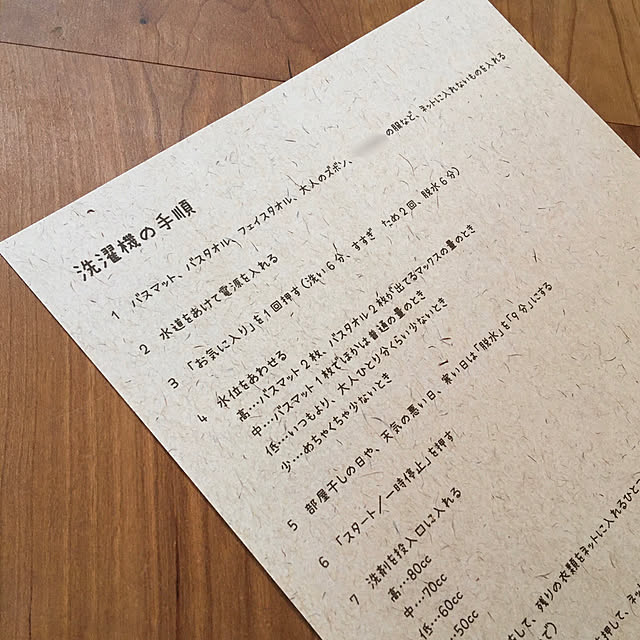 洗濯機の手順
1 バスマット、バスタオル、フェイスタオル、大人のズボン、 の服など、ネットに入れないものを入れる
2 水道をあけて電源を入れる
3 「お気に入り」を1回押す(洗い6分、すすぎ ため2回、脱水6分)
4 水位をあわせる
高…バスマット2枚、バスタオル2枚が出てるマックスの量のとき
中…バスマット1枚でほかは普通の量のとき
低…いつもより、大人ひとり分くらい少ないとき
少…めちゃくちゃ少ないとき
5 部屋干しの日や、天気の悪い日、寒い日は「脱水」を「9分」にする
6 「スタート/一時停止」を押す
7 洗剤を投入口に入れる
高…80cc
中…70cc
低…60cc
50cc
して、残りの衣類をネットに入れるひとつ
ど)
押して、ネッ